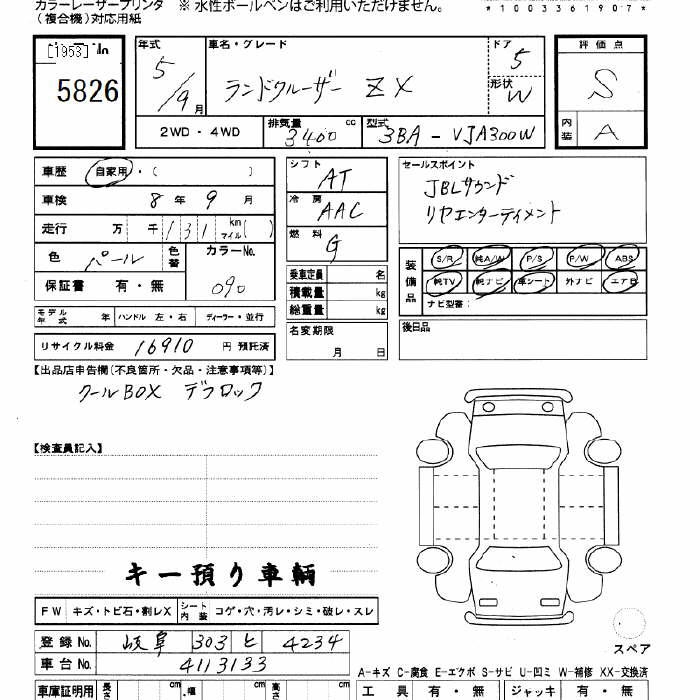 カラーレーザープリンタ ※ 水性ボールペンはご利用いただけません。
(複合機)対応用紙
*1003361907*
[1953]
5826
年式 5/9月
車名・グレード ランドクルーザー ZX
ドア 5
形状 W
2WD・4WD
排気量 3400 cc
型式 3BA-VJA300W
評価点 S
内装 A
車歴 自家用・( )
車検 8年 9月
走行 万 千 131 km マイル( )
色 パール 色替 カラーNo. 090
保証書 有・無
モデル年式 年 ハンドル 左・右 ディーラー・並行
リサイクル料金 16910 円 預託済
シフト AT
冷房 AAC
燃料 G
乗車定員 名
積載量 kg
総重量 kg
名変期限 月 日
セールスポイント
JBLサウンド
リヤエンターティメント
装備品 S/R 純A/W P/S P/W ABS
純TV 純ナビ 革シート 外ナビ エアB
ナビ型番:
後日品
【出品店申告欄(不良箇所・欠品・注意事項等)】
クールBOX デフロック
【検査員記入】
キー預り車輌
FW キズ・トビ石・割レX シート内装 コゲ・穴・汚レ・シミ・破レ・スレ
登録No. 岐阜 303 ヒ 4234
車台No. 4113133
スペア
A-キズ C-腐食 E-エクボ S-サビ U-凹ミ W-補修 XX-交換済
車庫証明用 長さ cm 幅 cm 高さ cm
工具 有・無 ジャッキ 有・無